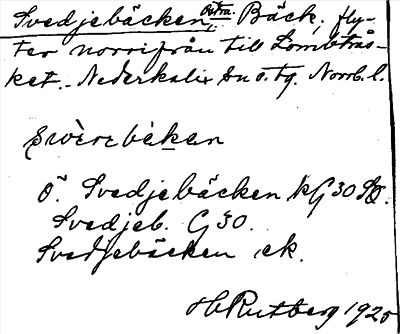 Svedjebäcken, östra. Bäck, fly-
ter norrifrån till Lombträs-
ket. Nederkalix sn o. tg. Norrb. l.
Ö. Svedjebäcken kG 30 SO.
Svedjeb. G 30.
Svedjebäcken ek.
HRutberg 1925